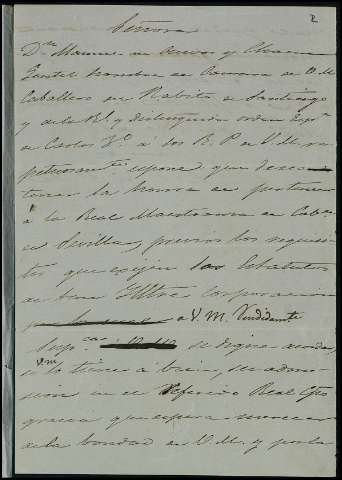 2
Señora
Dn. Manuel de y
Gentil hombre de Camara de V. M.
Caballero del Habito de Santiago
y de la Rl. y distinguida orden Españ.
de Carlos 3º. á los R. P. de V. M. re
petuosamte. espone que deseando
tener la honra de pertenecer
a la Real Maestranza de Caba
de Sevilla, previos los requisi
tos que exijen los Estatutos
de tan Iltre. corporacion
a V. M. Rendidamte.
Supca. se digne mandar,
si lo tiene a bien, su admi
sion en el referido Real Cpo.
gracia que espera merecer
de la bondad de V. M. y por la